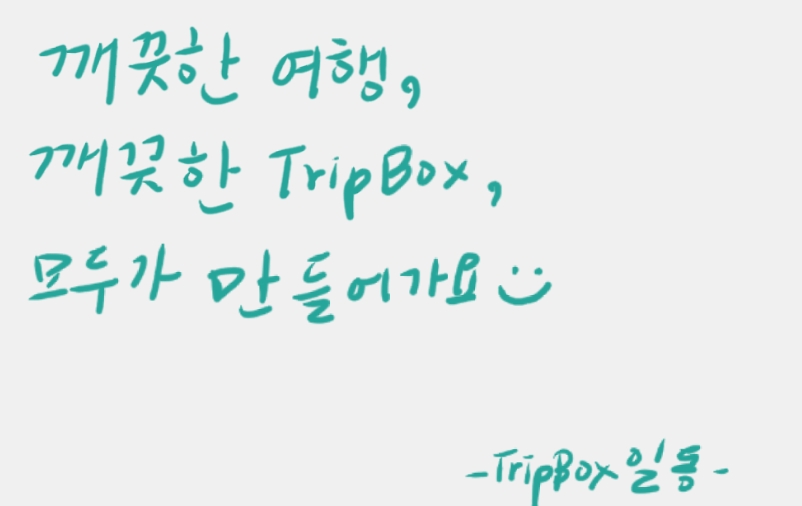 깨끗한 여행,
깨끗한 TripBox,
모두가 만들어가요
-TripBox 일동-